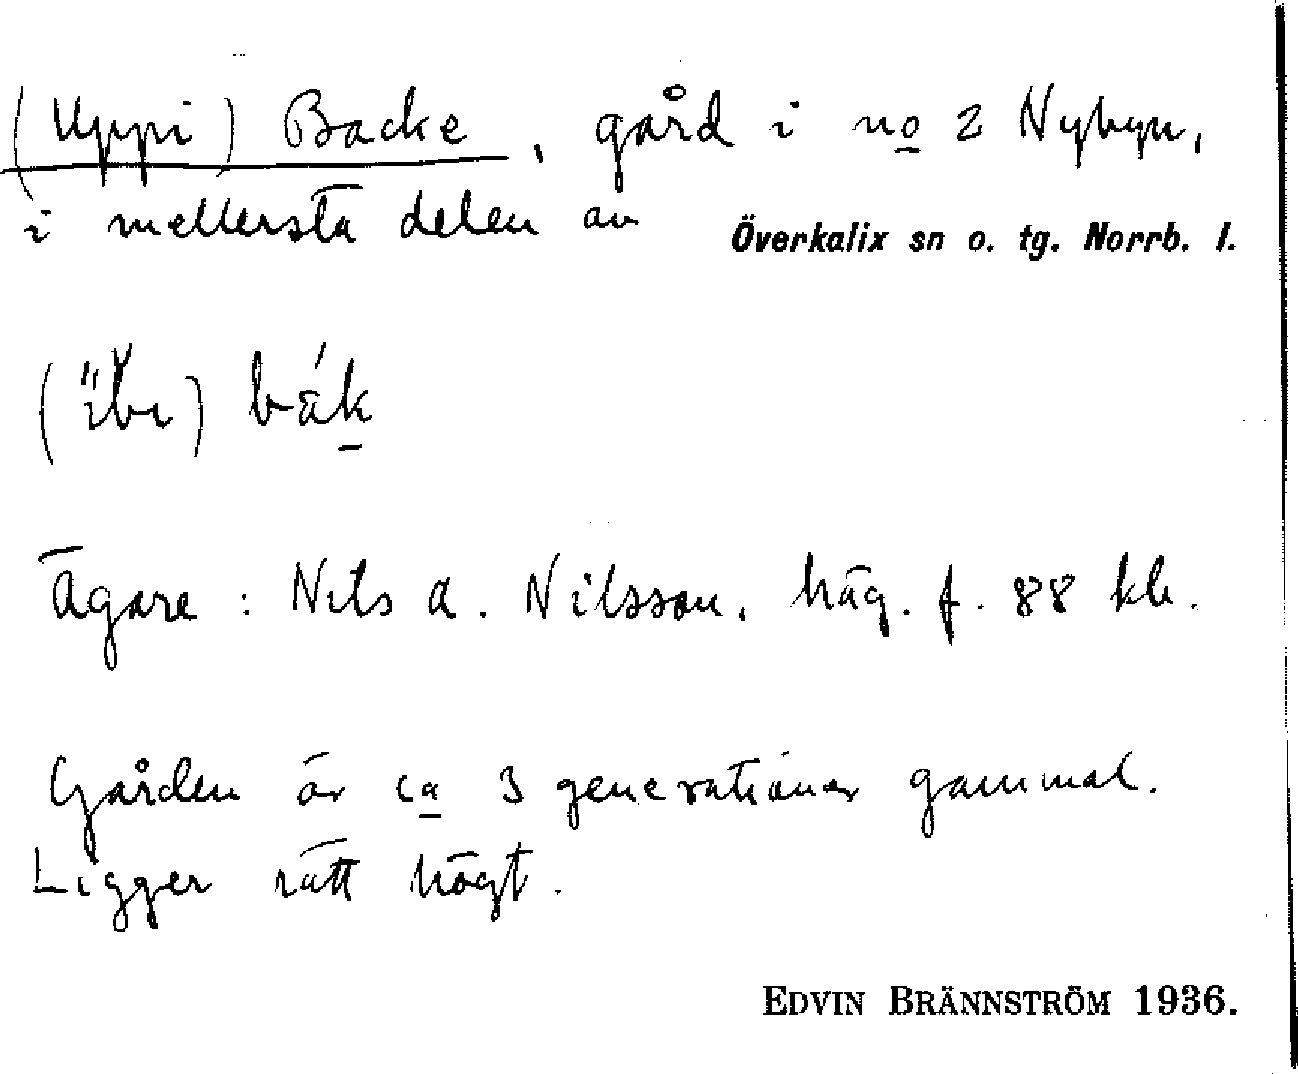 (Uppi) Backe, gård i no 2 Nybyn,
i mellersta delen av Överkalix sn o. tg. Norrb. l.
bák
Ägare: Nils A. Nilsson, häg. f. 88 kb.
Gården är ca 3 generationer gammal.
Ligger rätt högt.
EDVIN BRÄNNSTRÖM 1936.